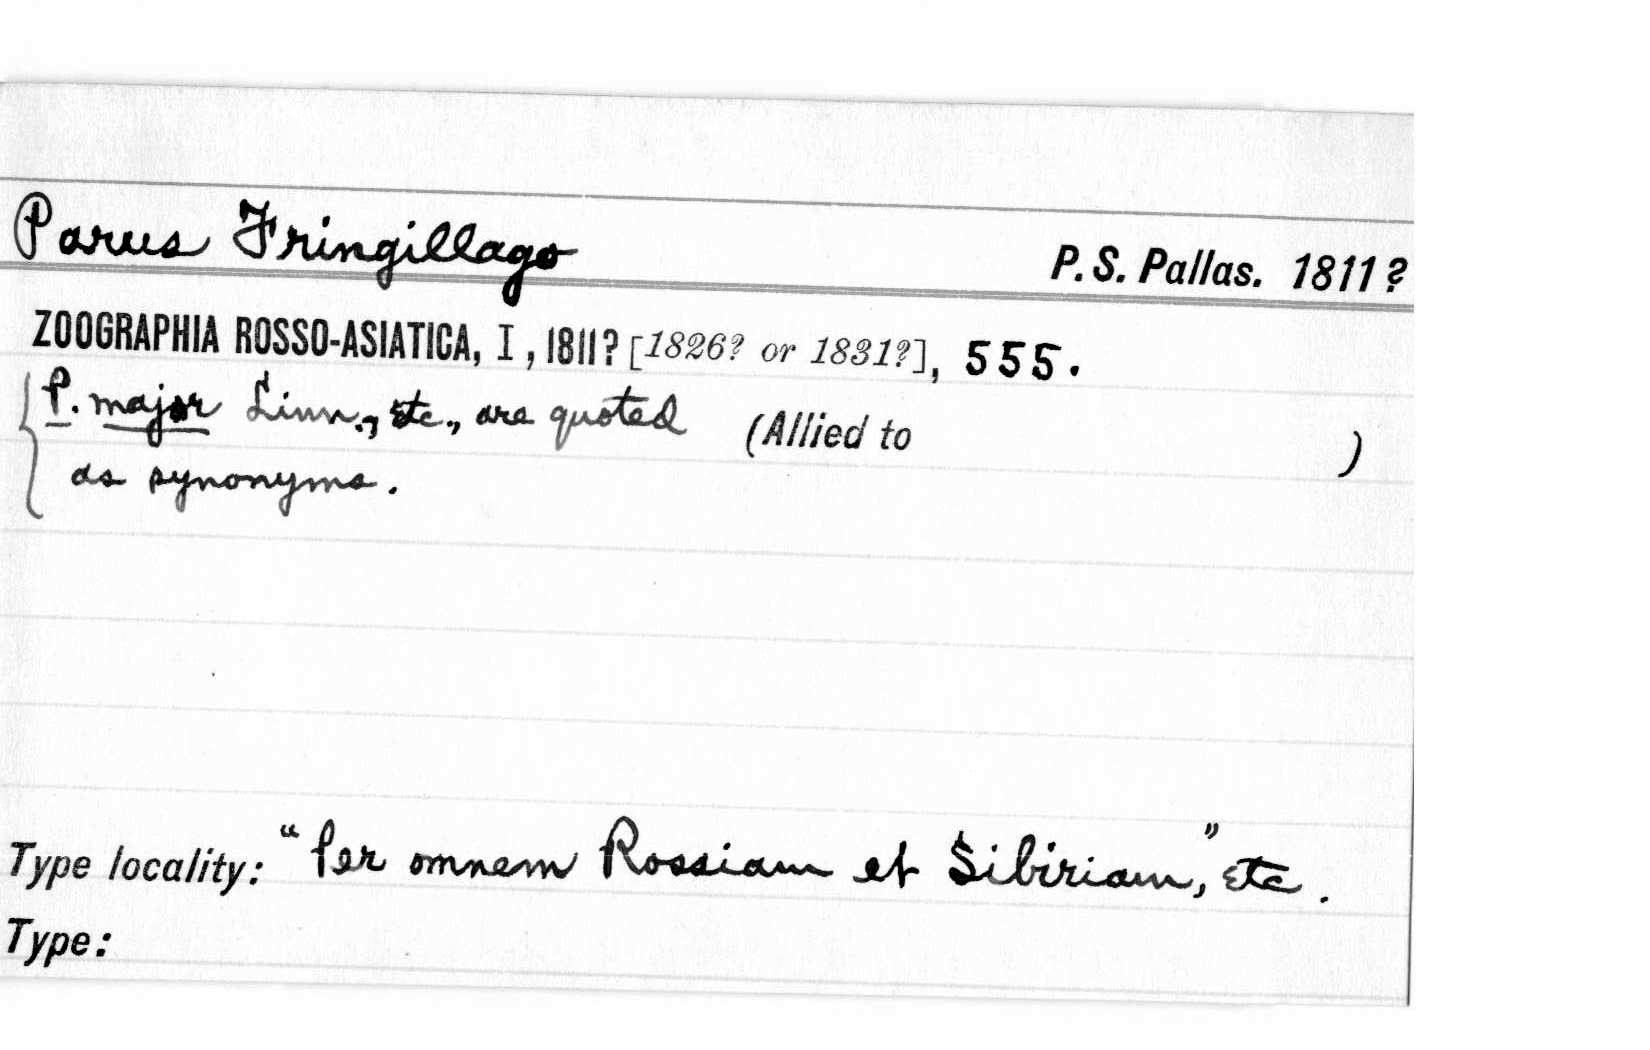 Parus Fringillago
P. S. Pallas. 1811?
ZOOGRAPHIA ROSSO-ASIATICA, I, 1811? [1826? or 1831?], 555.
P. major Linn., etc., are quoted (Allied to )
as synonyms.
Type locality: "Per omnem Rossiam et Sibiriam," etc.
Type: